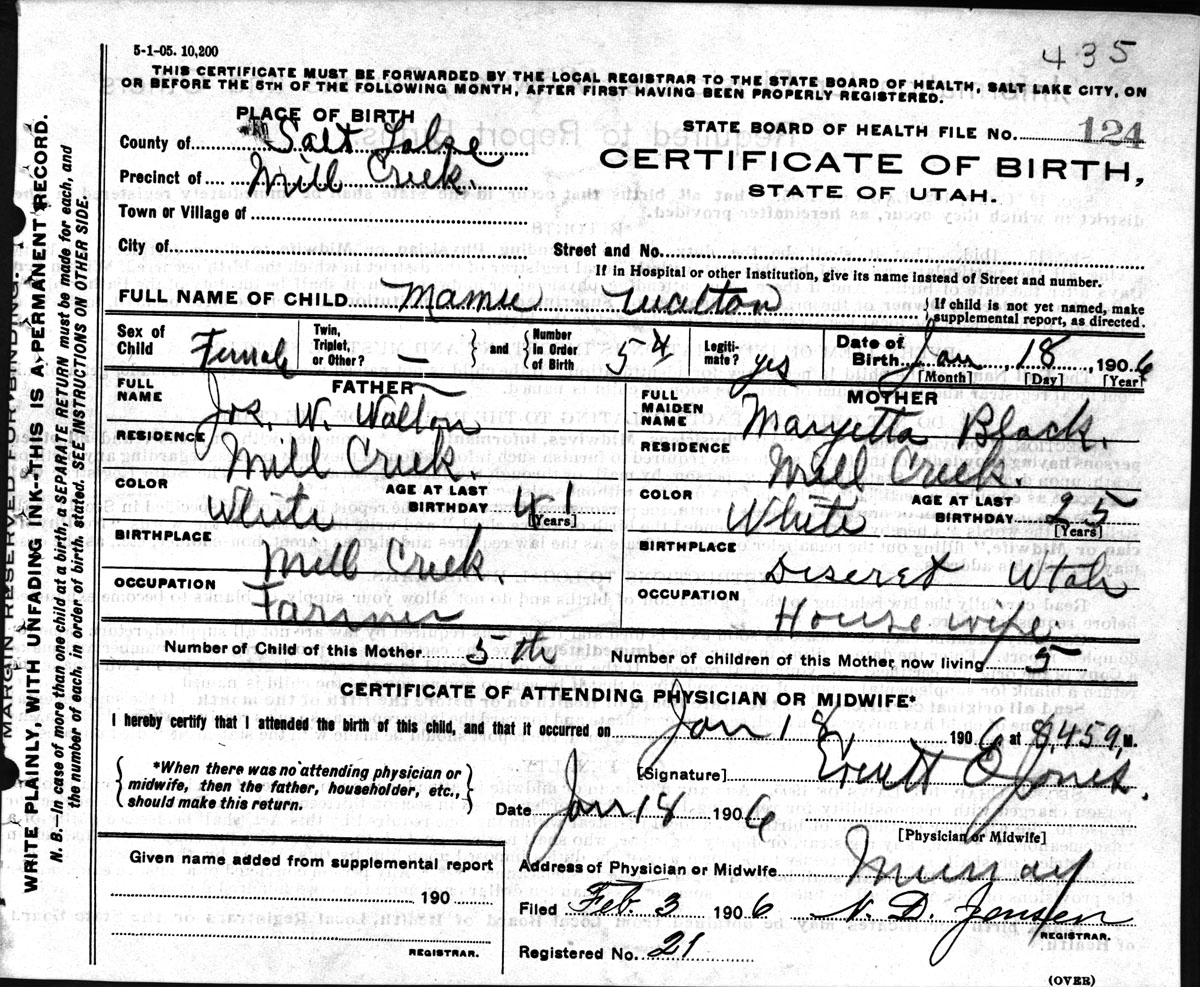 5-1-05. 10,200
435
THIS CERTIFICATE MUST BE FORWARDED BY THE LOCAL REGISTRAR TO THE STATE BOARD OF HEALTH, SALT LAKE CITY, ON
OR BEFORE THE 5TH OF THE FOLLOWING MONTH, AFTER FIRST HAVING BEEN PROPERLY REGISTERED.
PLACE OF BIRTH
County of Salt Lake
Precinct of Mill Creek.
Town or Village of
City of
STATE BOARD OF HEALTH FILE No. 124
CERTIFICATE OF BIRTH,
STATE OF UTAH.
Street and No.
If in Hospital or other Institution, give its name instead of Street and number.
FULL NAME OF CHILD. Mamie Walton
If child is not yet named, make
supplemental report, as directed.
Sex of Child Female
Twin, Triplet, or Other? —
and Number in Order of Birth 5th
Legiti- mate? yes
Date of Birth Jan 18, 1906
[Month] [Day] [Year]
FATHER
FULL NAME Jos. W. Walton
RESIDENCE Mill Creek.
COLOR White
AGE AT LAST BIRTHDAY 41
[Years]
BIRTHPLACE Mill Creek.
OCCUPATION Farmer
MOTHER
FULL MAIDEN NAME Maryetta Black.
RESIDENCE Mill Creek.
COLOR White
AGE AT LAST BIRTHDAY 25
[Years]
BIRTHPLACE Deseret Utah
OCCUPATION House wife.
Number of Child of this Mother 5th
Number of children of this Mother now living 5
CERTIFICATE OF ATTENDING PHYSICIAN OR MIDWIFE*
I hereby certify that I attended the birth of this child, and that it occurred on Jan 18, 1906 at 8,45 M.
*When there was no attending physician or
midwife, then the father, householder, etc.,
should make this return.
[Signature] Everett O Jones.
Date Jan 18 1906
[Physician or Midwife]
Given name added from supplemental report
190
REGISTRAR.
Address of Physician or Midwife Murray
Filed Feb. 3 1906 N. D. Jensen
REGISTRAR.
Registered No. 21
(OVER)
MARGIN RESERVED FOR BINDING.
WRITE PLAINLY, WITH UNFADING INK--THIS IS A PERMANENT RECORD.
N. B. In case of more than one child at a birth, a SEPARATE RETURN must be made for each, and
the number of each, in order of birth, stated. SEE INSTRUCTIONS ON OTHER SIDE.